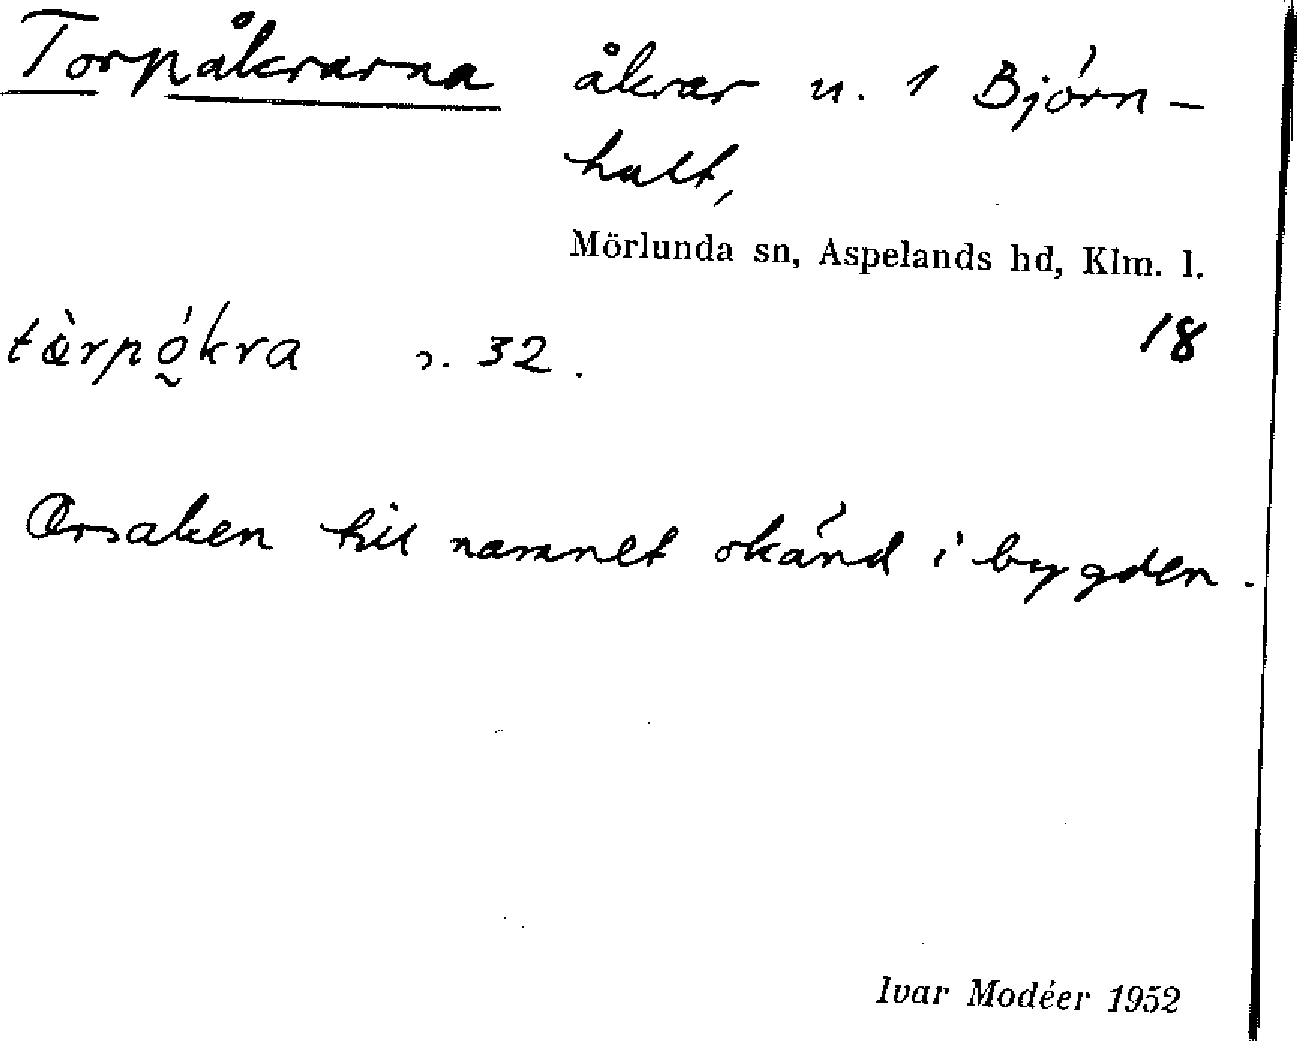 Torpåkrarna åkrar u. 1 Björn-
hult,
Mörlunda sn, Aspelands hd, Klm. l.
18
tæ̀rpǫ́kra s. 32.
Orsaken till namnet okänd i bygden.
Ivar Modéer 1952